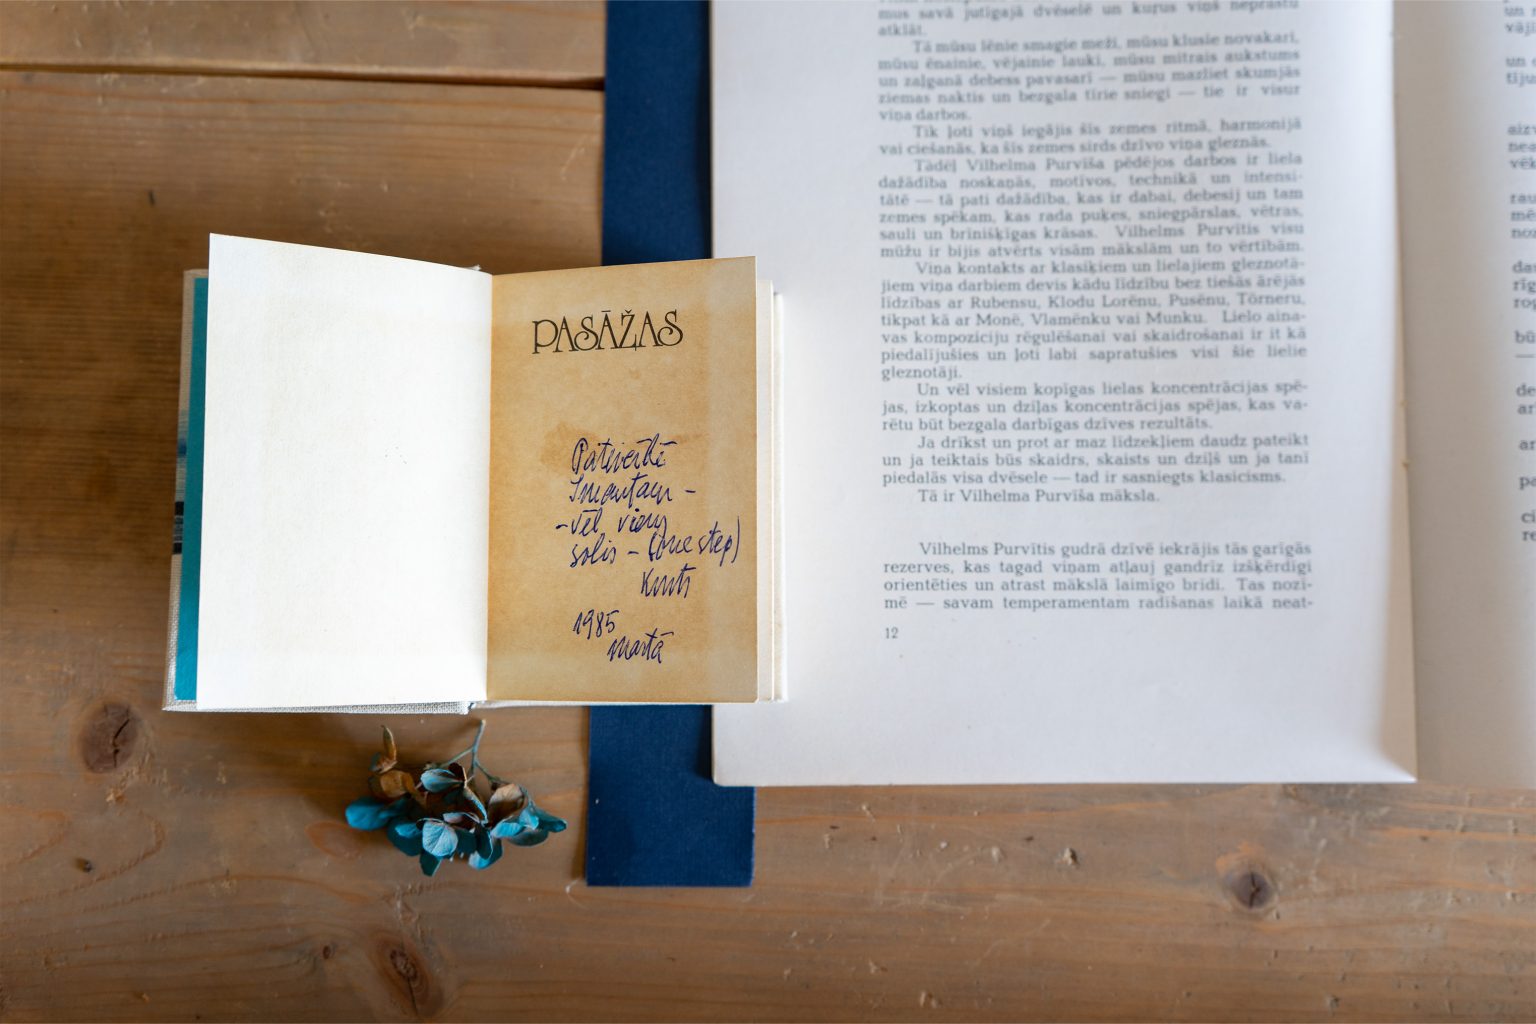 PASĀŽAS
Pateicībā
Imantam -
- vēl viens
solis - (one step)
1985
martā
mus savā jutīgajā dvēselē un kuŗus viņš neprastu
atklāt.
Tā mūsu lēnie smagie meži, mūsu klusie novakari,
mūsu ēnainie, vējainie lauki, mūsu mitrais aukstums
un zaļganā debess pavasarī — mūsu mazliet skumjās
ziemas naktis un bezgala tīrie sniegi — tie ir visur
viņa darbos.
Tik ļoti viņš iegājis šīs zemes ritmā, harmonijā
vai ciešanās, ka šīs zemes sirds dzīvo viņa gleznās.
Tādēļ Vilhelma Purvīša pēdējos darbos ir liela
dažādība noskaņās, motīvos, technikā un intensi-
tātē — tā pati dažādība, kas ir dabai, debesij un tam
zemes spēkam, kas rada puķes, sniegpārslas, vētras,
sauli un brīnišķīgas krāsas. Vilhelms Purvītis visu
mūžu ir bijis atvērts visām mākslām un to vērtībām.
Viņa kontakts ar klasiķiem un lielajiem gleznotā-
jiem viņa darbiem devis kādu līdzību bez tiešās ārējās
līdzības ar Rubensu, Klodu Lorēnu, Pusēnu, Tōrneru,
tikpat kā ar Monē, Vlamēnku vai Munku. Lielo aina-
vas kompoziciju rēgulēšanai vai skaidrošanai ir it kā
piedalījušies un ļoti labi sapratušies visi šie lielie
gleznotāji.
Un vēl visiem kopīgas lielas koncentrācijas spē-
jas, izkoptas un dziļas koncentrācijas spējas, kas va-
rētu būt bezgala darbīgas dzīves rezultāts.
Ja drīkst un prot ar maz līdzekļiem daudz pateikt
un ja teiktais būs skaidrs, skaists un dziļš un ja tanī
piedalās visa dvēsele — tad ir sasniegts klasicisms.
Tā ir Vilhelma Purvīša māksla.
Vilhelms Purvītis gudrā dzīvē iekrājis tās garīgās
rezerves, kas tagad viņam atļauj gandrīz izšķērdīgi
orientēties un atrast mākslā laimīgo brīdi. Tas nozī-
mē — savam temperamentam radīšanas laikā neat-
12